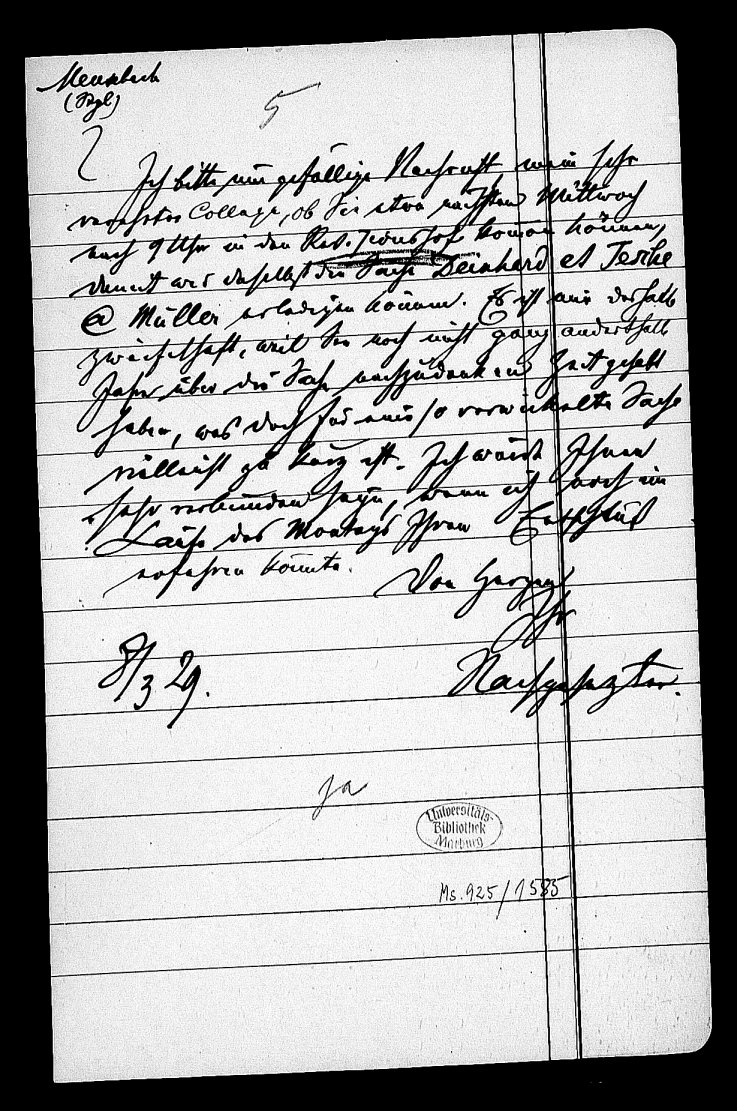 Meusebach
(Sgl)
5
Ich bitte um gefällige Nachricht, mein sehr
verehrter College, ob Sie etwa nächsten Mittwoch
nach 9 Uhr in den Rev. kommen können,
damit wir daselbst die Sache Deinhard et Tesche
@ Müller erledigen können. Es ist mir deshalb
zweifelhaft, weil Sie noch nicht ganz anderthalb
Jahre über die Sache nachzudenken Zeit gehabt
haben, was doch für eine so verwickelte Sache
vielleicht zu kurz ist. Ich würde Ihnen
sehr verbunden seyn, wenn ich noch im
Laufe des Montags Ihren Entschluß
erfahren könnte.
Von Herzen
Ihr
Nachgesezter.
8/3 29.
ja
Universitäts-
Bibliothek
Marburg
Ms. 925/1585